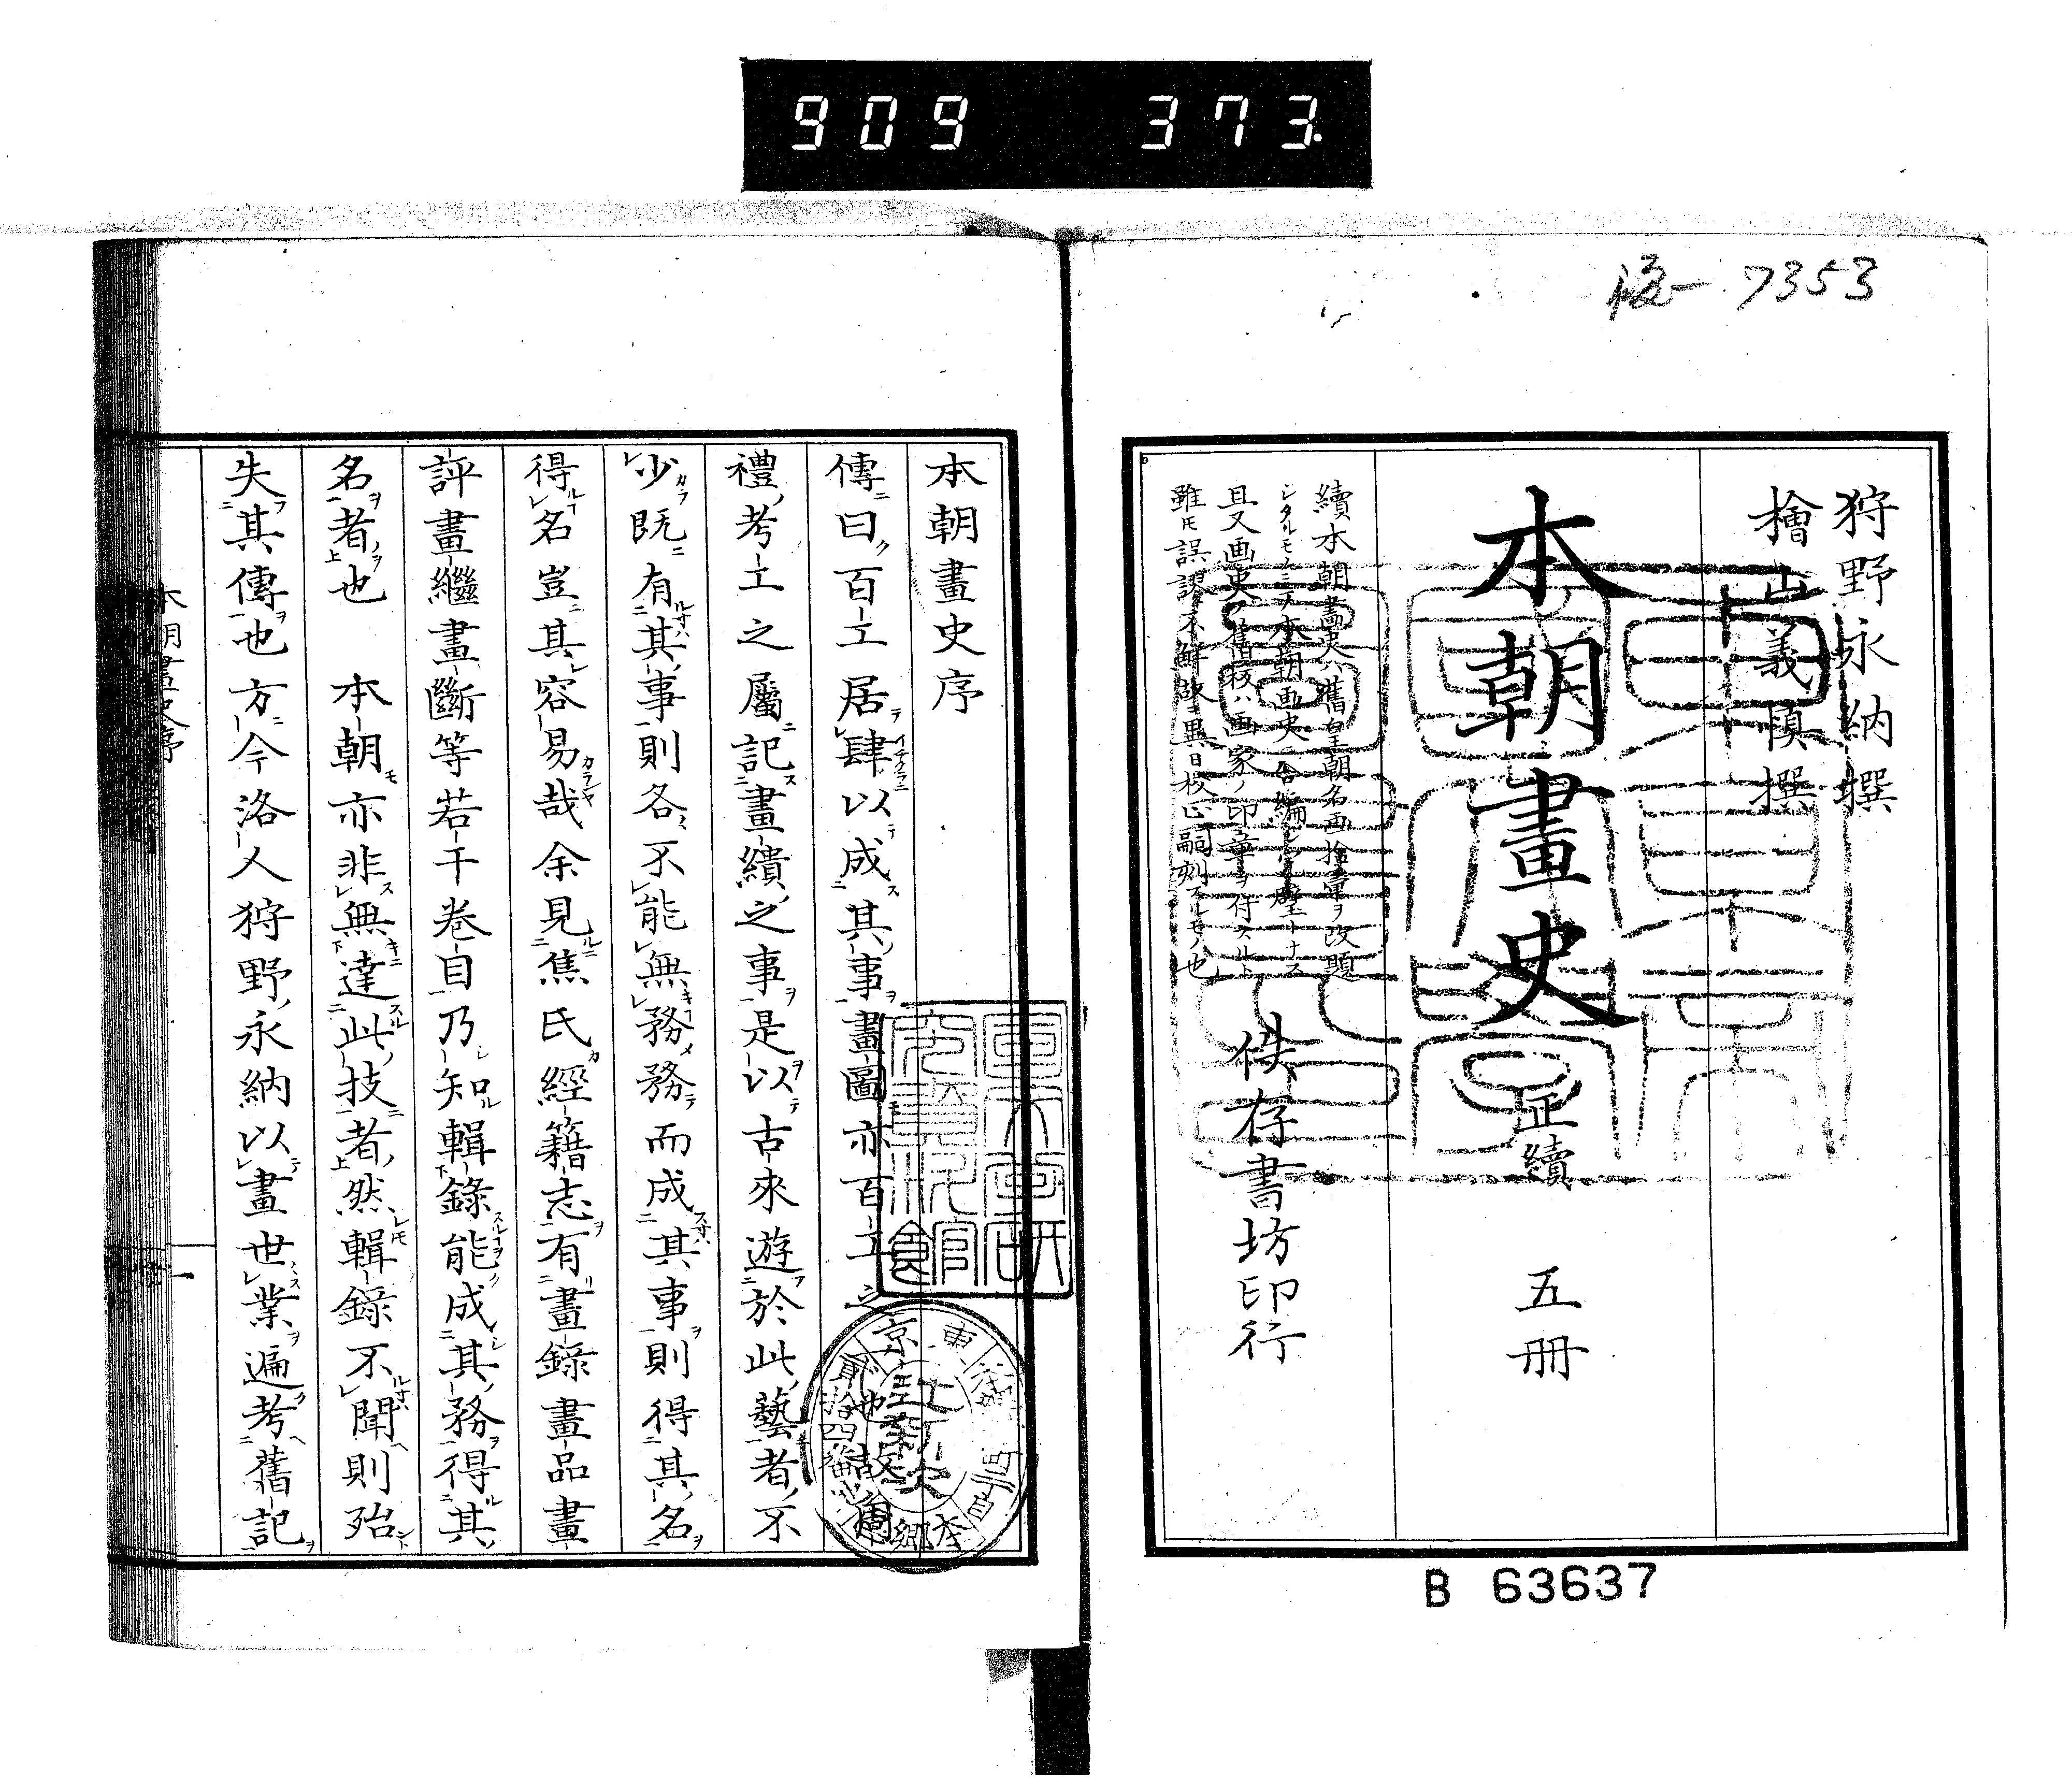 909 373.
後一7353
狩野永納撰
檜山義愼撰
本朝畫史 正續 五冊
續本朝畫史ハ舊皇朝名画拾彙ヲ改題
且又画史ノ舊板ハ画家ノ印章ヲ付スルト
雖モ誤謬不鮮故ニ異日校正嗣刻スルモノ也
佚存書坊印行
B 63637
本朝畫史序
傳曰百工居肆以成其事畫圖亦百工之
禮考工之屬記畫繢之事是以古來遊於此藝者不
少既有其事則各不能無務務而成其事則得其名
得名豈其容易哉余見焦氏經籍志有畫錄畫品畫
評畫繼畫斷等若干卷目乃知輯錄能成其務得其
名者也 本朝亦非無達此技者然輯錄不聞則殆
失其傳也方今洛人狩野永納以畫世業遍考舊記
本朝畫史序